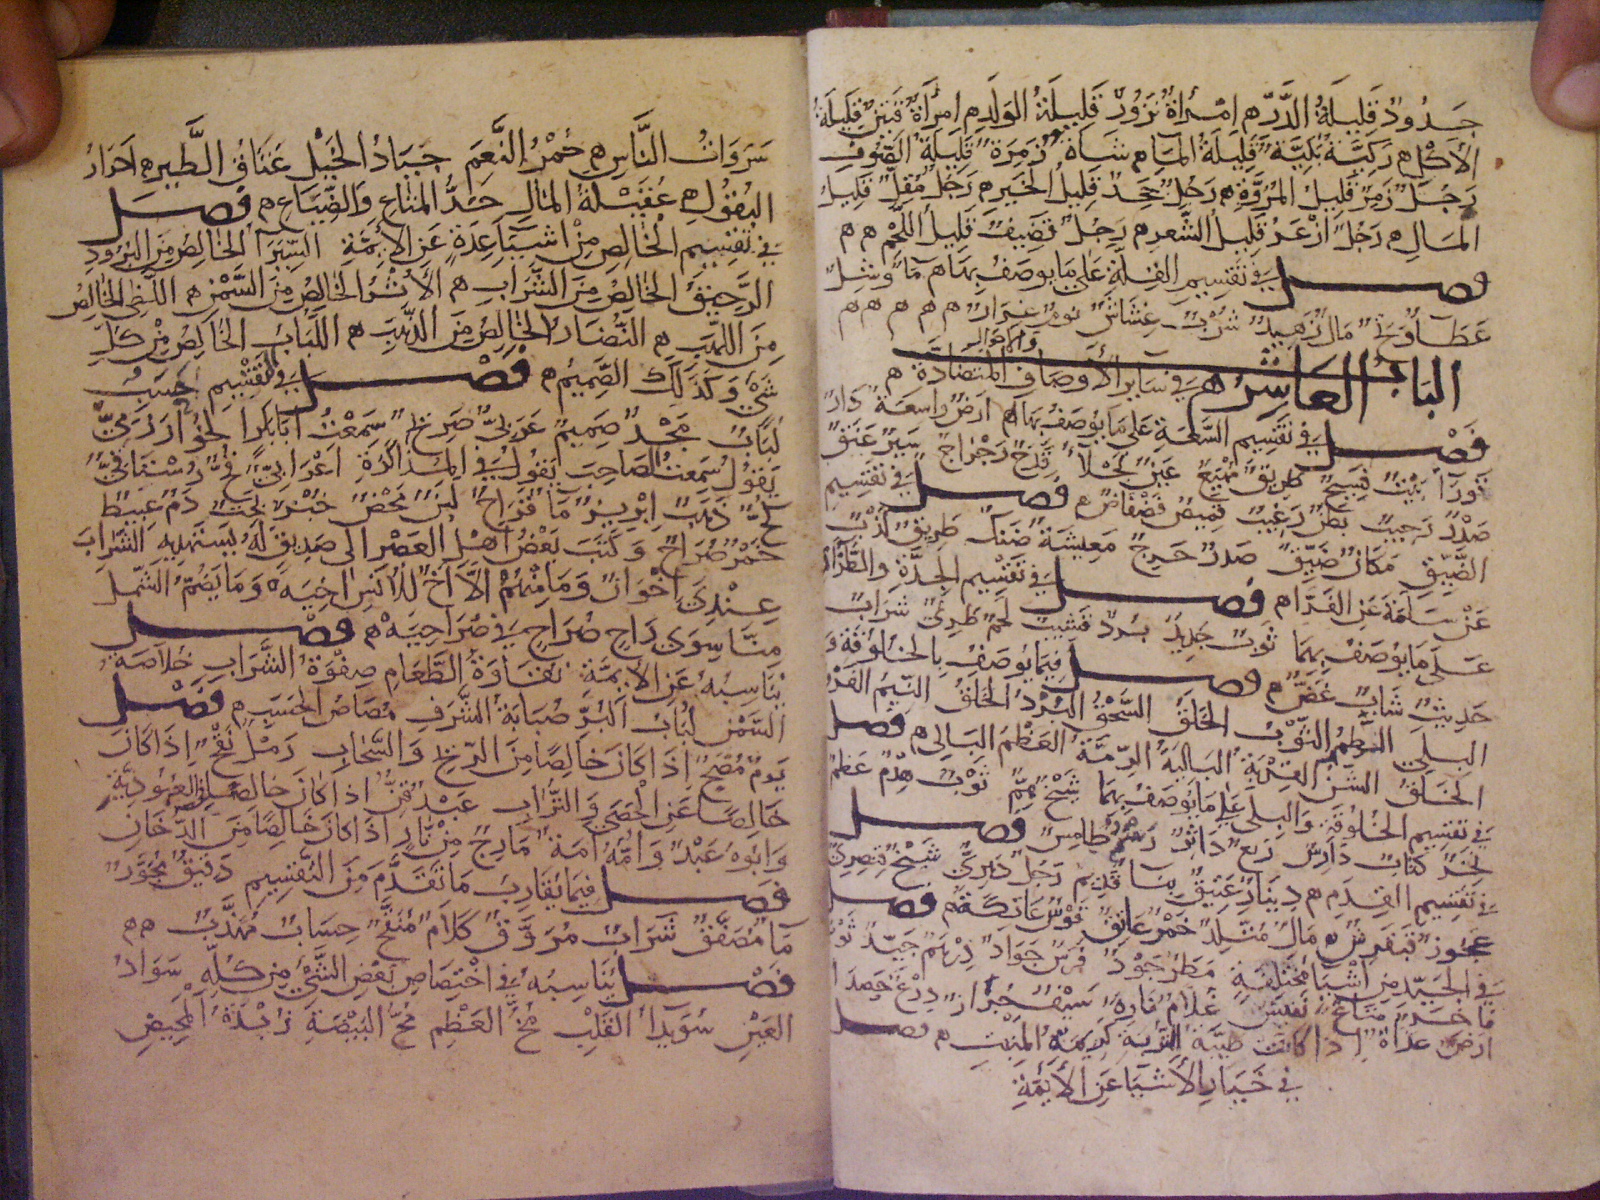 جدود قليلة الدر ه امرأة نزور قليلة الولد ه امرأة قتين قليلة
الأكل ه ركية بكية قليلة الماء ه شاة زمرة قليلة الصوف
رجل زمر قليل المروة ه رجل جحد قليل الخير ه رجل مقل قليل
المال ه رجل أزعر قليل الشعر ه رجل قضيف قليل اللحم ه ه
فصل في تقسيم القلة على ما يوصف بها ه ماء وشل
عطاء وتح مال زهيد شرب غشاش نوم غرار ه ه ه ه ه ه
الباب العاشر ه في سائر الأوصاف والأحوال المتضادة ه
فصل في تقسيم السعة على ما يوصف بها ه أرض واسعة دار
قوراء بيت فسيح طريق مهيع عين نجلاء رجراج سير عنق
صدر رحيب بطن رغيب قميص فضفاض ه فصل في تقسيم
الضيق مكان ضيق صدر حرج معيشة ضنك طريق لزب
عن سلمة عن الفراء ه فصل في تقسيم الجدة والطراء
على ما يوصف بهما ثوب جديد برد قشيب لحم طري شراب
حديث شاب غض ه فصل فيما يوصف بالخلوقة و
البلى الطمر الثوب الخلق السحق البرد الخلق النيم الفرو
الخلق الشن القربة البالية الرمة العظم البالي ه فصل
في تقسيم الخلوقة والبلى على ما يوصف بهما شيخ هم ثوب هدم عظم
نخر كتاب دارس ربع داثر رسم طامس فصل
في تقسيم القدم ه دينار عتيق بناء قديم رجل دهري شيخ قنسري
عجوز قنفرش ه مال متلد خمر عاتق قوس عاتكة ه فصل
في الجيد من أشياء مختلفة مطر جود فرس جواد درهم جيد ثوب
فاخر متاع نفيس غلام فاره سيف جراز درع حصداء
أرض عذاة إذا كانت طيبة التربة كريمة المنبت ه فصل
في خيار الأشياء عن الأئمة
سروات الناس ه حمر النعم جياد الخيل عتاق الطير ه أحرار
البقول ه عقيلة المال حر المتاع والضياع ه فصل
في تقسيم الخالص من أشياء عدة عن الأئمة السيراء الخالص من البرود
الرحيق الخالص من الشراب ه الأثر الخالص من السمن ه اللظى الخالص
من اللهب ه النضار الخالص من الذهب ه اللباب الخالص من كل
شيء وكذلك الصميم ه فصل في تقسيم حسب
لباب مجد صميم عربي صريح سمعت أبا بكر الخوارزمي
يقول سمعت الصاحب يقول في المذاكرة أعرابي قح رستاقي
كح ذهب إبريز ماء قراح لبن محض خبز بحت دم عبيط
خمر صراح وكتب بعض أهل العصر إلى صديق له يستهديه الشراب
عندي أخوان وما منهم إلا أخ للأنس أخيه وما يضم الشمل
منا سوى راح صراح في صراحيه ه فصل
يناسبه عن الأئمة نقاوة الطعام صفوة الشراب خلاصة
السمن لباب البر صيابة الشرف مصاص الحسب ه فصل
يوم مصح إذا كان خالصا من الريح والسحاب رمل نقح إذا كان
خالصا عن الحصى والتراب عبد قن إذا كان خالص العبودية
وأبوه عبد وأمه أمة مارج من نار إذا كان خالصا من الدخان
فصل فيما يقارب ما تقدم من التقسيم دقيق محور
ماء مصفق شراب مروق كلام منقح حساب مهذب ه ه
فصل يناسبه في اختصاص بعض الشيء من كله سواد
العين سويداء القلب مخ العظم مح البيضة زبدة المخيض